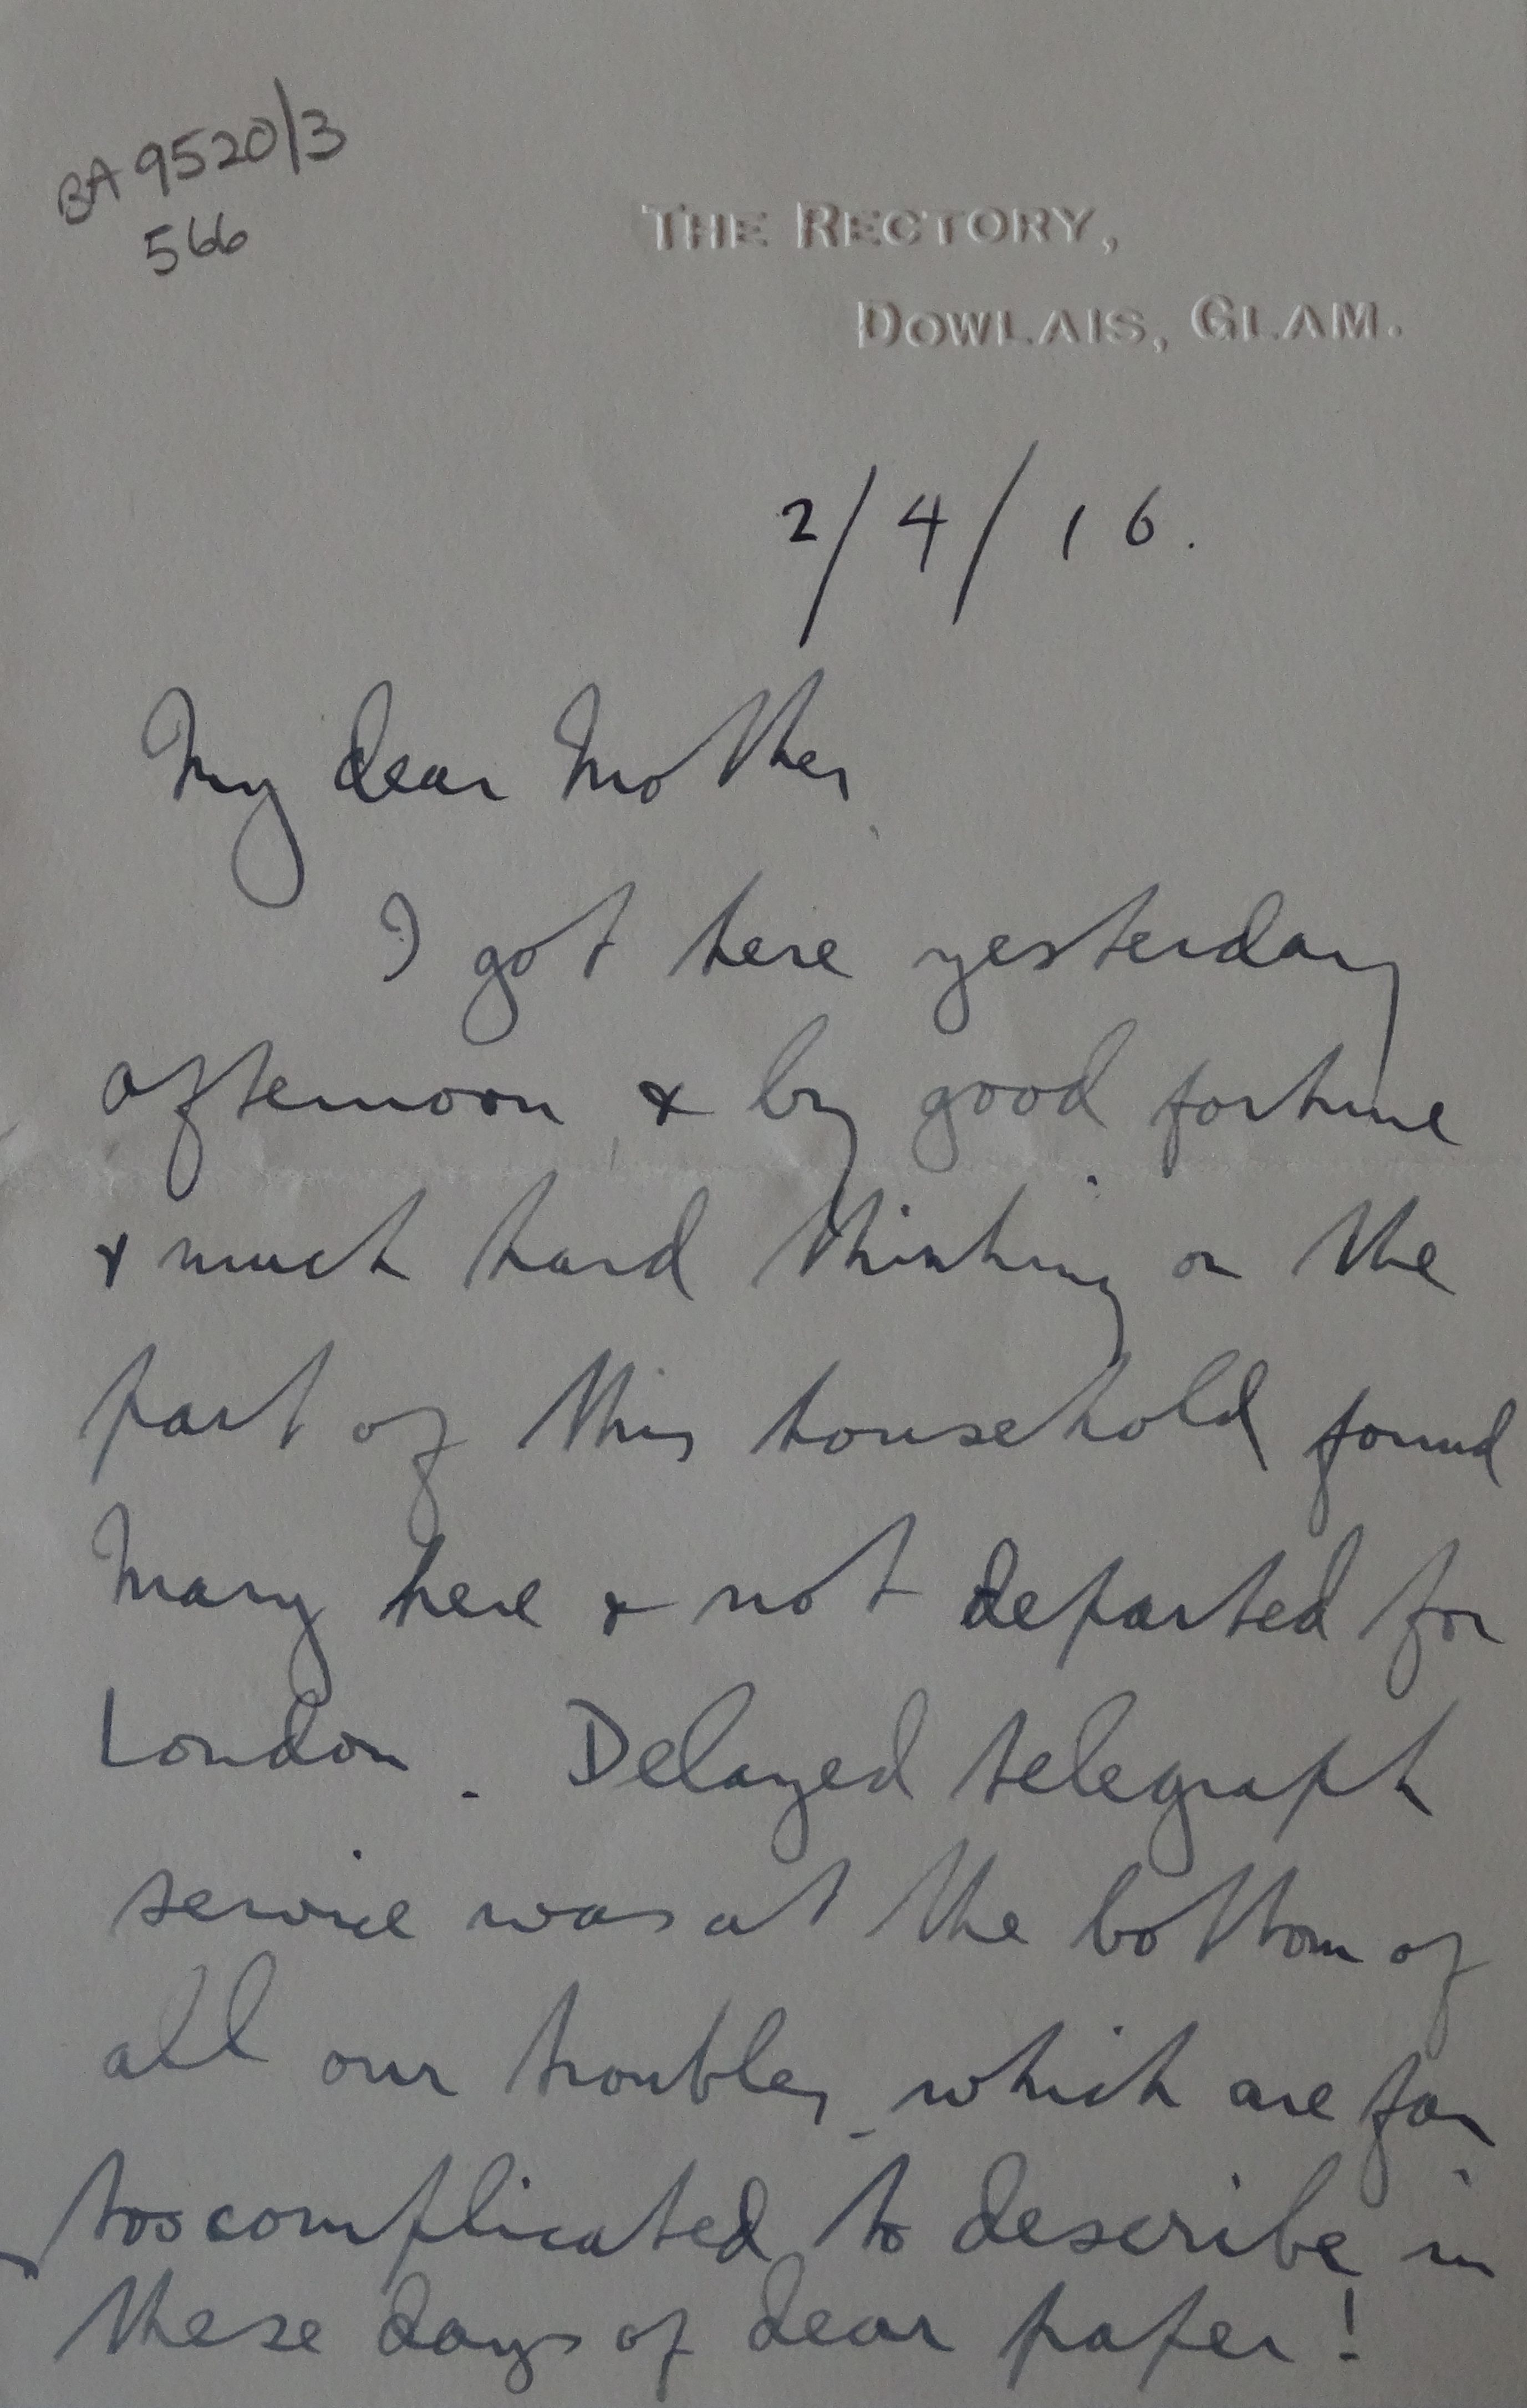 BA 9520/3
566
THE RECTORY,
DOWLAIS, GLAM.
2/4/16.
My dear Mother
I got here yesterday
afternoon & by good fortune
& much hard thinking on the
part of this household found
Mary here & not departed for
London. Delayed telegraph
service was at the bottom of
all our troubles which are far
too complicated to describe in
these days of dear paper!